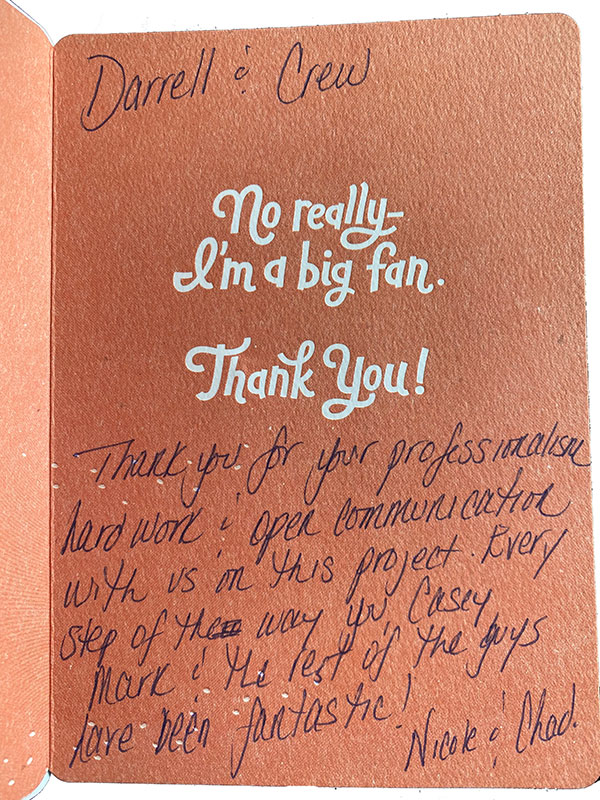 Darrell & Crew
No really-
I'm a big fan.
Thank You!
Thank you for your professionalism
hard work & open communication
with us on this project. Every
step of the way you, Casey
Mark & the rest of the guys
have been fantastic!
Nicole & Chad.